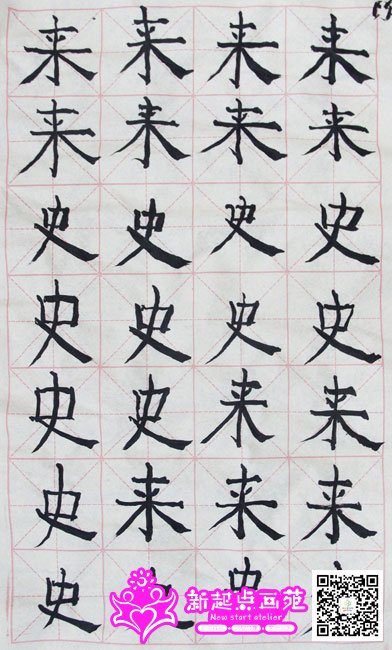 来来来来
来来来来
史史史史
史史史史
史史来来
史来来来
史史
新起点画苑
New start atelier